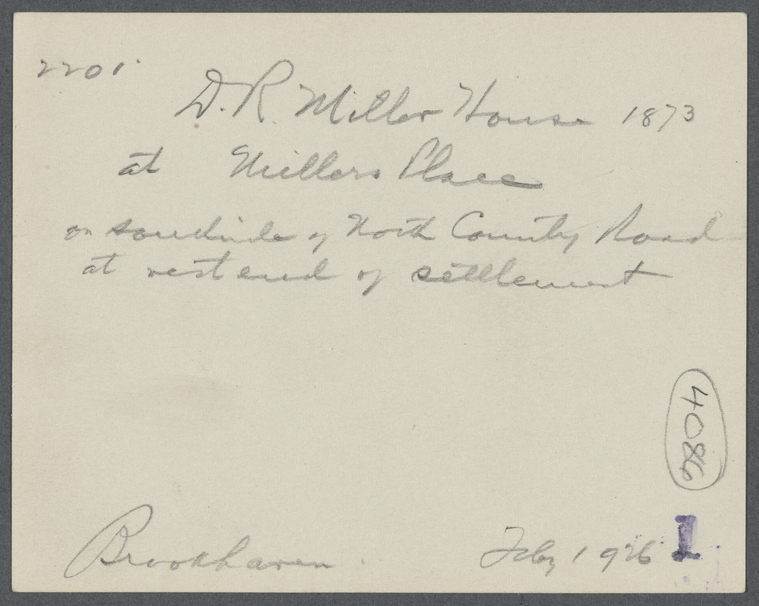 2201
D. R. Miller House 1873
at Millers Place
on southside of North County Road
at west end of settlement
4086
Brookhaven
Feby 1926
1